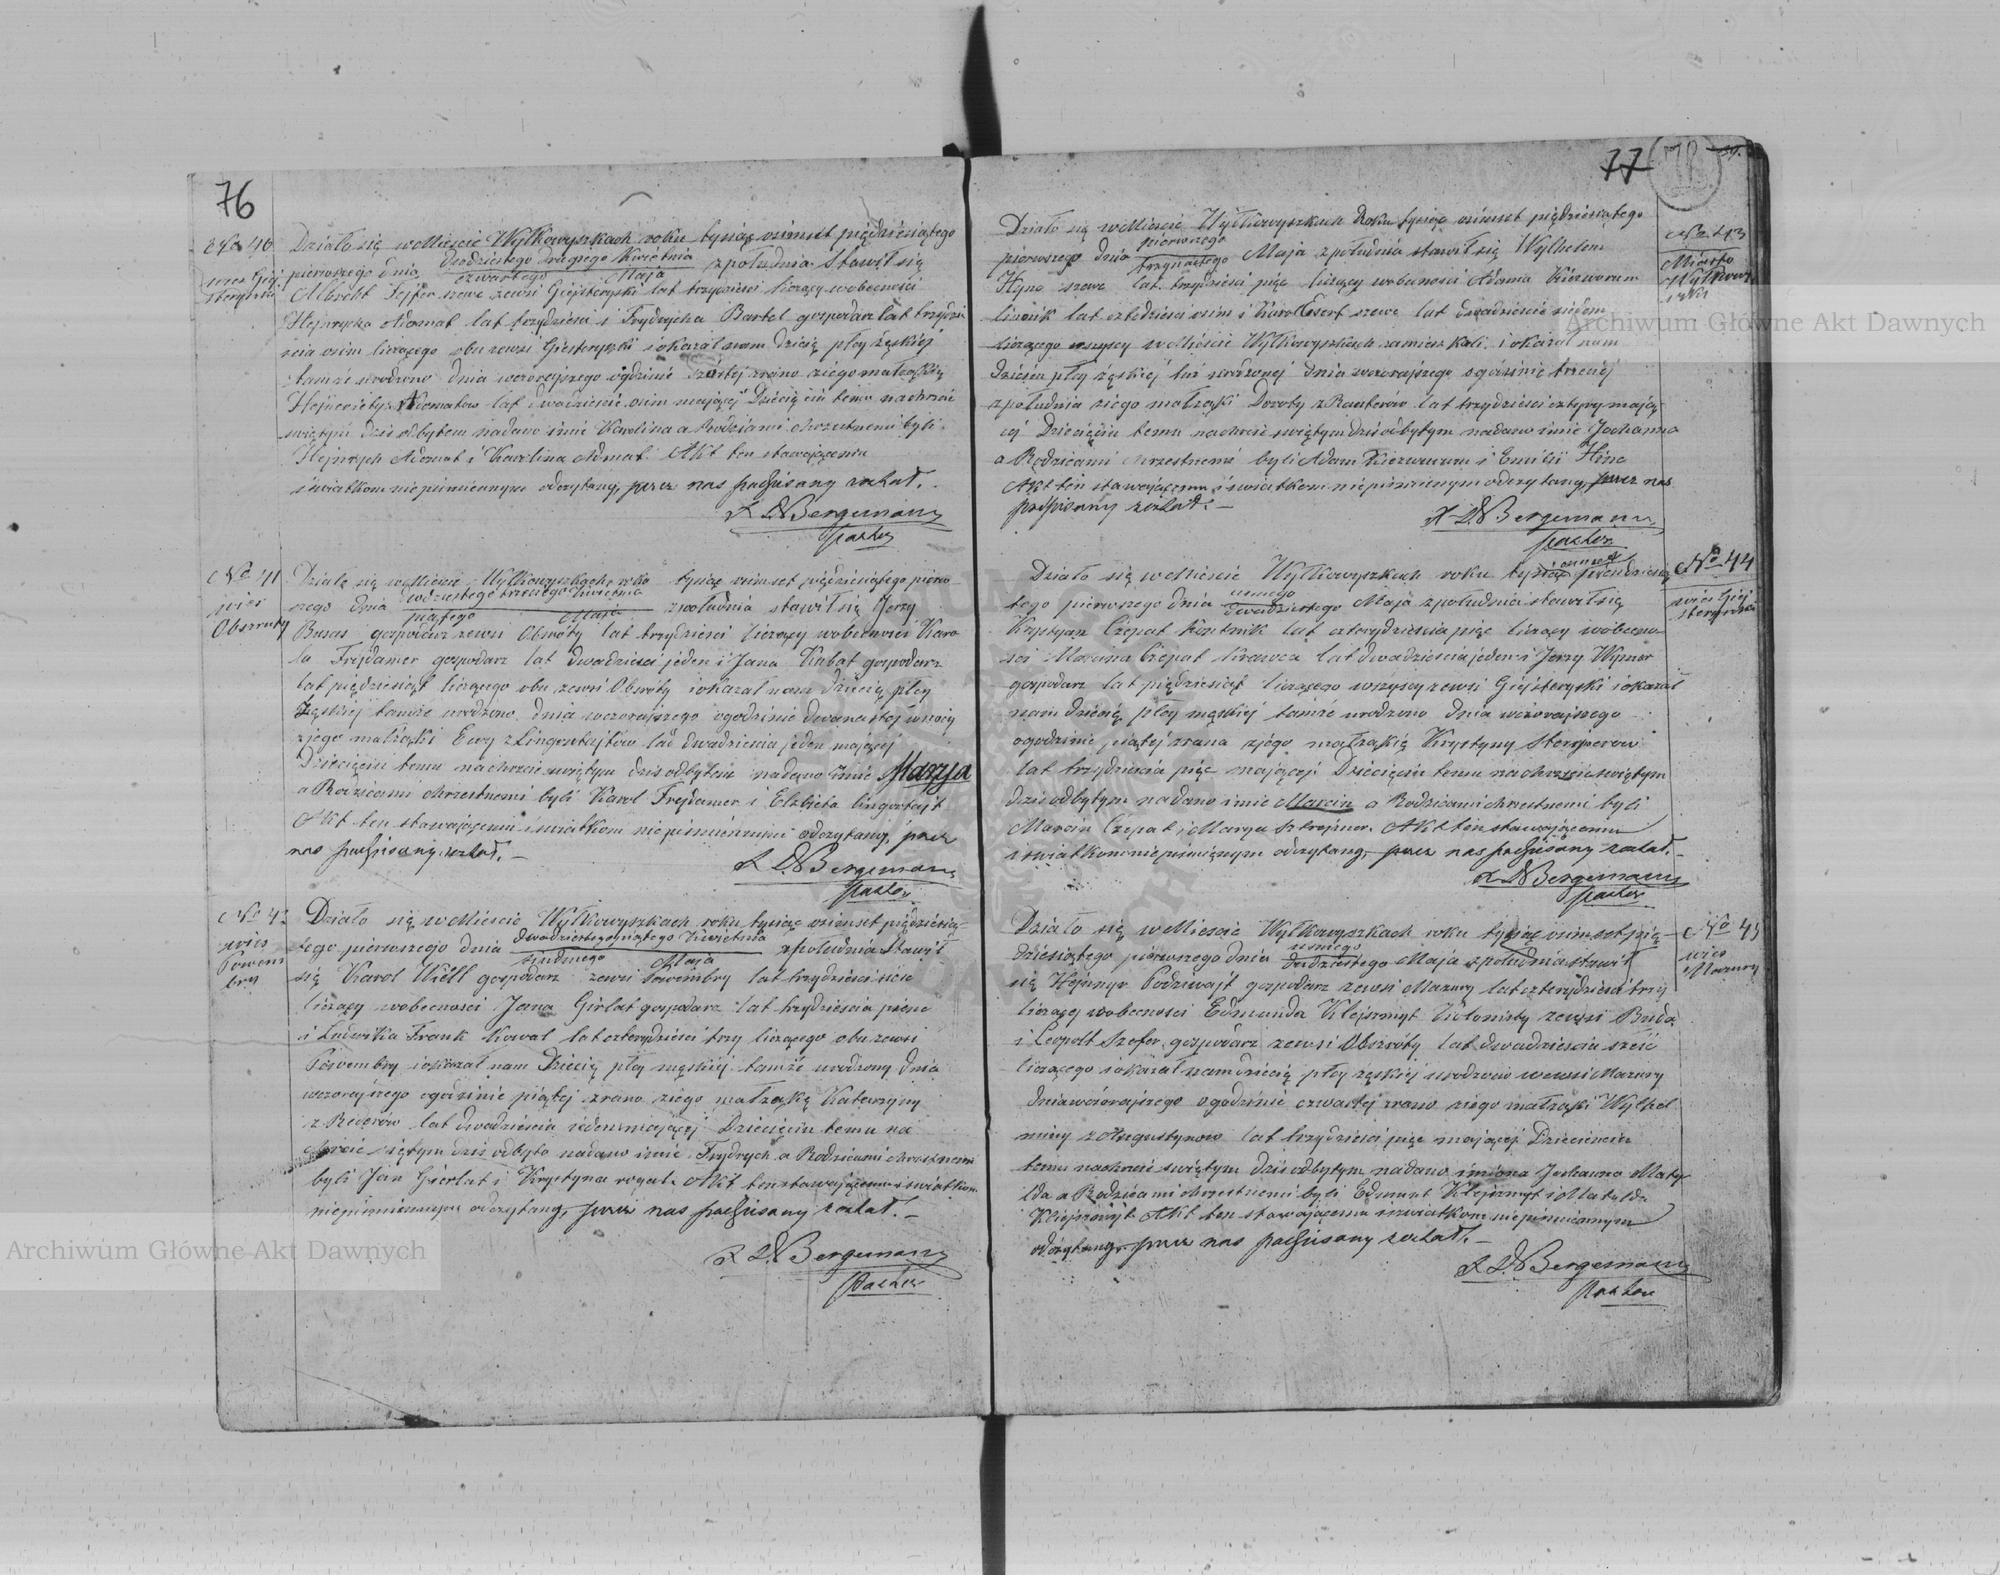 76
No 40
wies Giej
steryszki
Działo się w Mieście Wyłkowyszkach roku tysiąc osimset pięździesiątego
pierwszego dnia dwódziestego drugiego Kwietnia / czwartego Maja z południa Stawił się
Albrecht szewc zewsi Giejsteryszki lat trzydzieści liczący wobecności
Hejnrycha Adomat lat trzydzieści i Frydrycha Bartel gospodarz lat trzydzi
scia osim liczącego obu zewsi Giejsteryszki i okazał nam Dziecię płcy żęskiej
tamże urodzono dnia wczorajszego ogodzinie zrano ziego małżąkię
Hejnryiety z Adomatow lat dwadzieście osim mającej Dziecięciu temu na chrzcie
swiętym dziś odbytem nadano imie Karolina a Rodzicami chrzestnemi byli
Hejnrych Adomat i Karolina Adomat. Akt ten stawającemu
i swiatkom niepismiennym odczytany, przez nas podpisany został.
Bergemann
Pastor
No 41
wies
Obszruty
Działo się w Mieście Wyłkowyszkach roku tysiąc osimset pięździesiątego pierw
szego dnia dwodziestego trzeciego Kwietnia / piątego Maja z południa stawił się Jerzy
Busas gospodarz zewsi Obsruty lat trzydzieści liczący wobecności Karo
la Frejdamer gospodarz lat dwadzieści jeden i Jana Kubat gospodarz
lat pięździesiąt liczącego obu zewsi Obsruty i okazał nam Dziecię płcy
Żęskiej tamże urodzono dnia wczorajszego ogodzinie dwanastej wnocy
zjego małżąki Ewy z Lingertajtów lat dwadziescia jeden mającej
Dziecięciu temu na chrzcie swiętym dziś odbytem nadano imie Maryja
a Rodzicami chrzestnemi byli Karol Frejdamer i Elzbieta Lingertajt
Akt ten stawającemu i swiatkom niepismiennemi odczytany, przez
nas podpisany został.
Bergemann
Pastor
No 42
wies
Powem
bry
Działo się w Mieście Wyłkowyszkach roku tysiąc osimset pięździesią
tego pierwszego dnia dwódziestegopiątego Kwietnia / siudmego Maja zpołudnia Stawił
się Karol Well gospodarz zewsi Powembry lat trzydzieści
liczący wobecności Jana Girlat gospodarz lat trzydzieścia
i Ludwika Frank Kowal lat czterydzieści trzy liczącego obu zewsi
Powembry i okazał nam Dziecię płcy męskiej tamże urodzony dnia
wczorajszego ogodzinie piątej zrano ziego małżąkę Katarzyny
z Rederów lat dwadzieścia jeden mającej Dziecięciu temu na
chrzcie swiętym dziś odbyto nadano imie Frydrych a Rodzicami chrzestnemi
byli Jan Gierlat i Krystyna. Akt ten stawającemu i swiatkom
niepismiennym odczytany, przez nas podpisany został.
Bergemann
Pastor
77
No 43
Miasto
Wyłkowy
szki
Działo się w Mieście Wyłkowyszkach Roku tysiąc osimset pięździesiątego
pierwszego dnia pierwszego / trzynastego Maja zpołudnia stawił się Wylhelm
Hyno szewc lat trzydzieści pięc liczący wobecności Adoma
lat czterdzieści osim i Karol szewc lat dwadzieście siedem
liczącego wszyscy w Mieście Wyłkowyszkach zamieszkali i okazał nam
dziecię płcy żęskiej tu urodzonej dnia wczorajszego ogodzinie trzeciej
zpołudnia ziego małżąki Doroty z Rauterów lat trzydzieści cztyry mają
cej Dziecięciu temu na chrzcie swiętym dziś odbytym nadano imie Johanna
a Rodzicami chrzestnemi byli Adam i Emilii Hine
Akt ten stawającemu i swiatkom niepismiennym odczytany, przez nas
podpisany został.
Bergemann
Pastor
No 44
wies Giej
steryszki
Działo się w Mieście Wyłkowyszkach roku tysiąc osimset pięździesią
tego pierwszego dnia usmego / dwadziestego Maja zpołudnia stawił się
Krystyan Czepat lat czterydzieścia pięc liczący wobecno
sci Marcina Czepat Krawca lat dwadzieścia jeden i Jerzy Wymer
gospodarz lat pięździesiąt liczącego wszyscy zewsi Giejsteryszki i okazał
nam dziecię płcy męskiej tamże urodzono dnia wczorajszego
ogodzinie piątej zrana zjego małżąkię Krystyny
lat trzydzieścia pięc mającej Dziecięciu temu na chrzcie swiętym
dziś odbytym nadano imie Marcin a Rodzicami chrzestnemi byli
Marcin Czepat i Marya. Akt ten stawającemu
i swiatkom niepismiennym odczytany, przez nas podpisany został.
Bergemann
Pastor
No 45
wies
Mazury
Działo się w Mieście Wyłkowyszkach roku tysiąc osimset pię
dziesiątego pierwszego dnia usmego / dwdziestego Maja zpołudnia stawił
się Hejnryr Podziwajt gospodarz zewsi Mazury lat czterydzieści trzy
liczącej wobecności Edmunda Klejszmyt Kolonisty zewsi Buda
i Leopolt Szefer gospodarz zewsi Obszruty lat dwadzieścia sześć
liczącego i okazał nam dziecię płcy żęskiej urodzono wewsi Mazury
dnia wczorajszego ogodzinie czwartej zrano ziego małżąki Wylhel
miny z Augustynow lat trzydzieści pięc mającej Dziecięciu
temu na chrzcie swiętym dziś odbytym nadano imiona Johanna Matyl
lda a Rodzicami chrzestnemi byli Edmunt Klejszmyt i Matylda
Klejszmyt Akt ten stawającemu i swiatkom niepismiennym
odczytany przez nas podpisany został.
Bergemann
Pastor
Archiwum Główne Akt Dawnych
Archiwum Główne Akt Dawnych